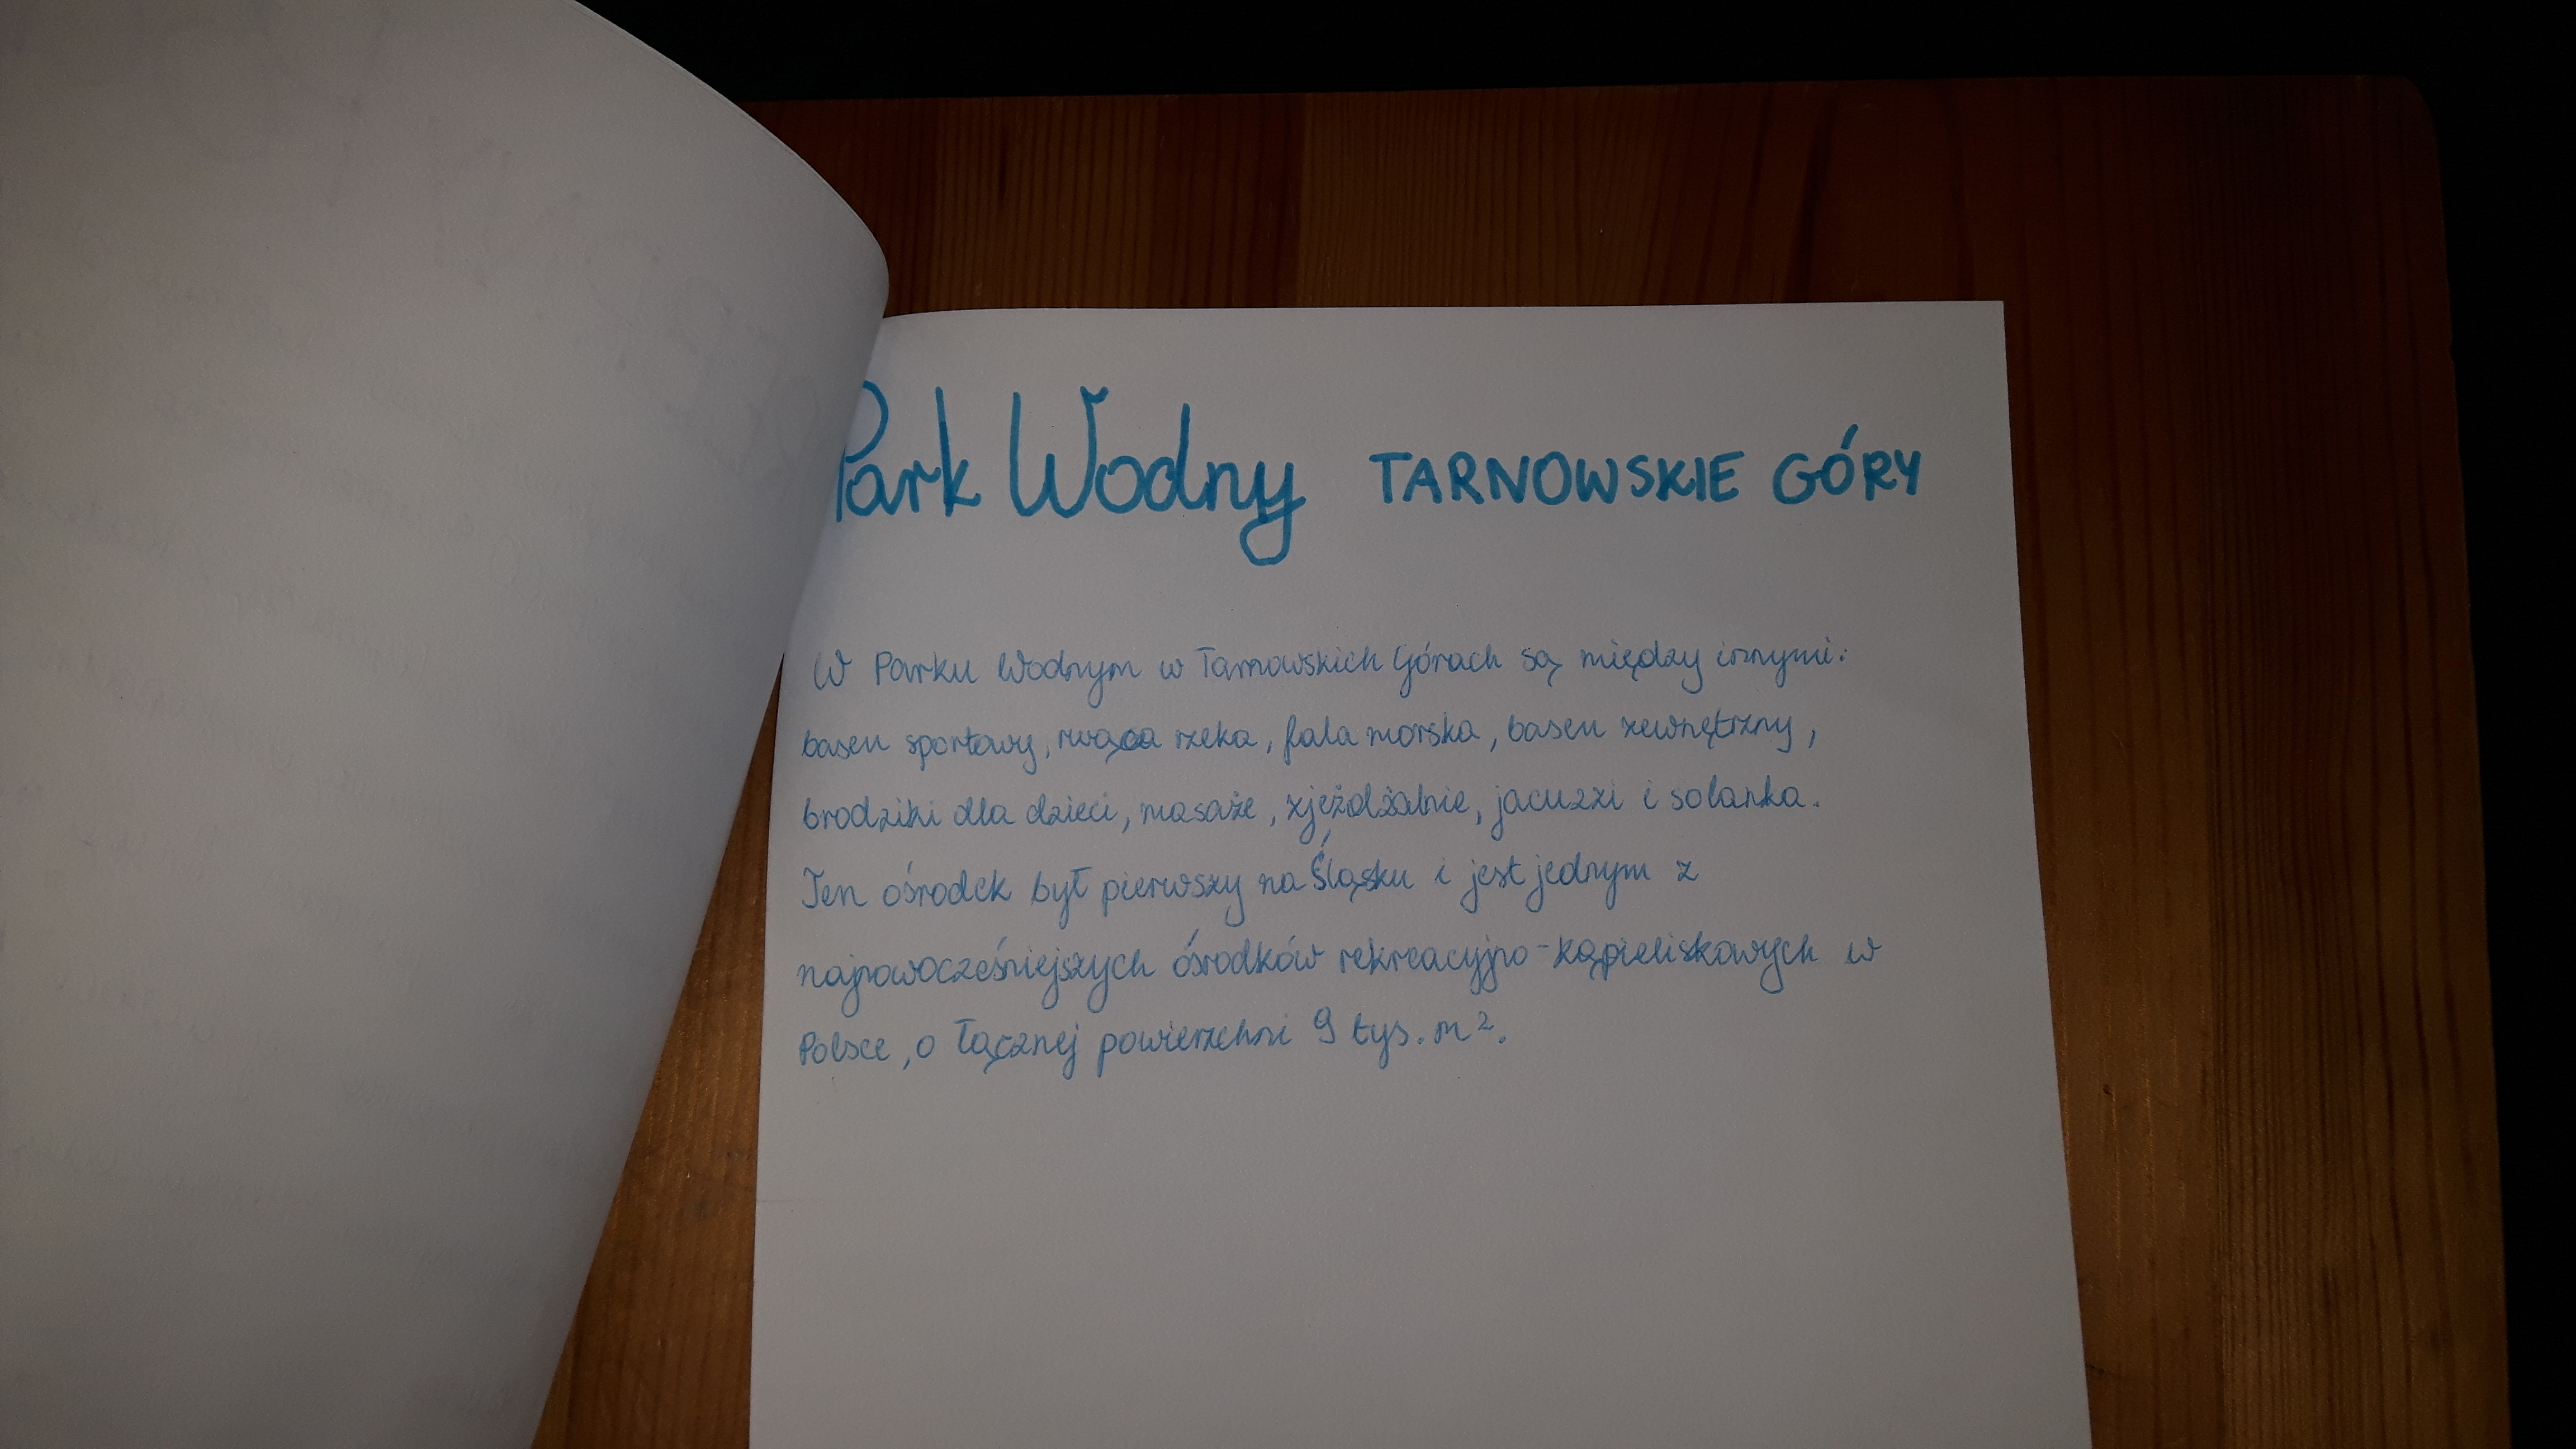 Park Wodny TARNOWSKIE GÓRY
W Parku Wodnym w Tarnowskich Górach są między innymi:
basen sportowy, rwąca rzeka, fala morska, basen zewnętrzny,
brodziki dla dzieci, masaże, zjeżdżalnie, jacuzzi i solanka.
Ten ośrodek był pierwszy na Śląsku i jest jednym z
najnowocześniejszych ośrodków rekreacyjno-kąpieliskowych w
Polsce, o łącznej powierzchni 9 tys. m².